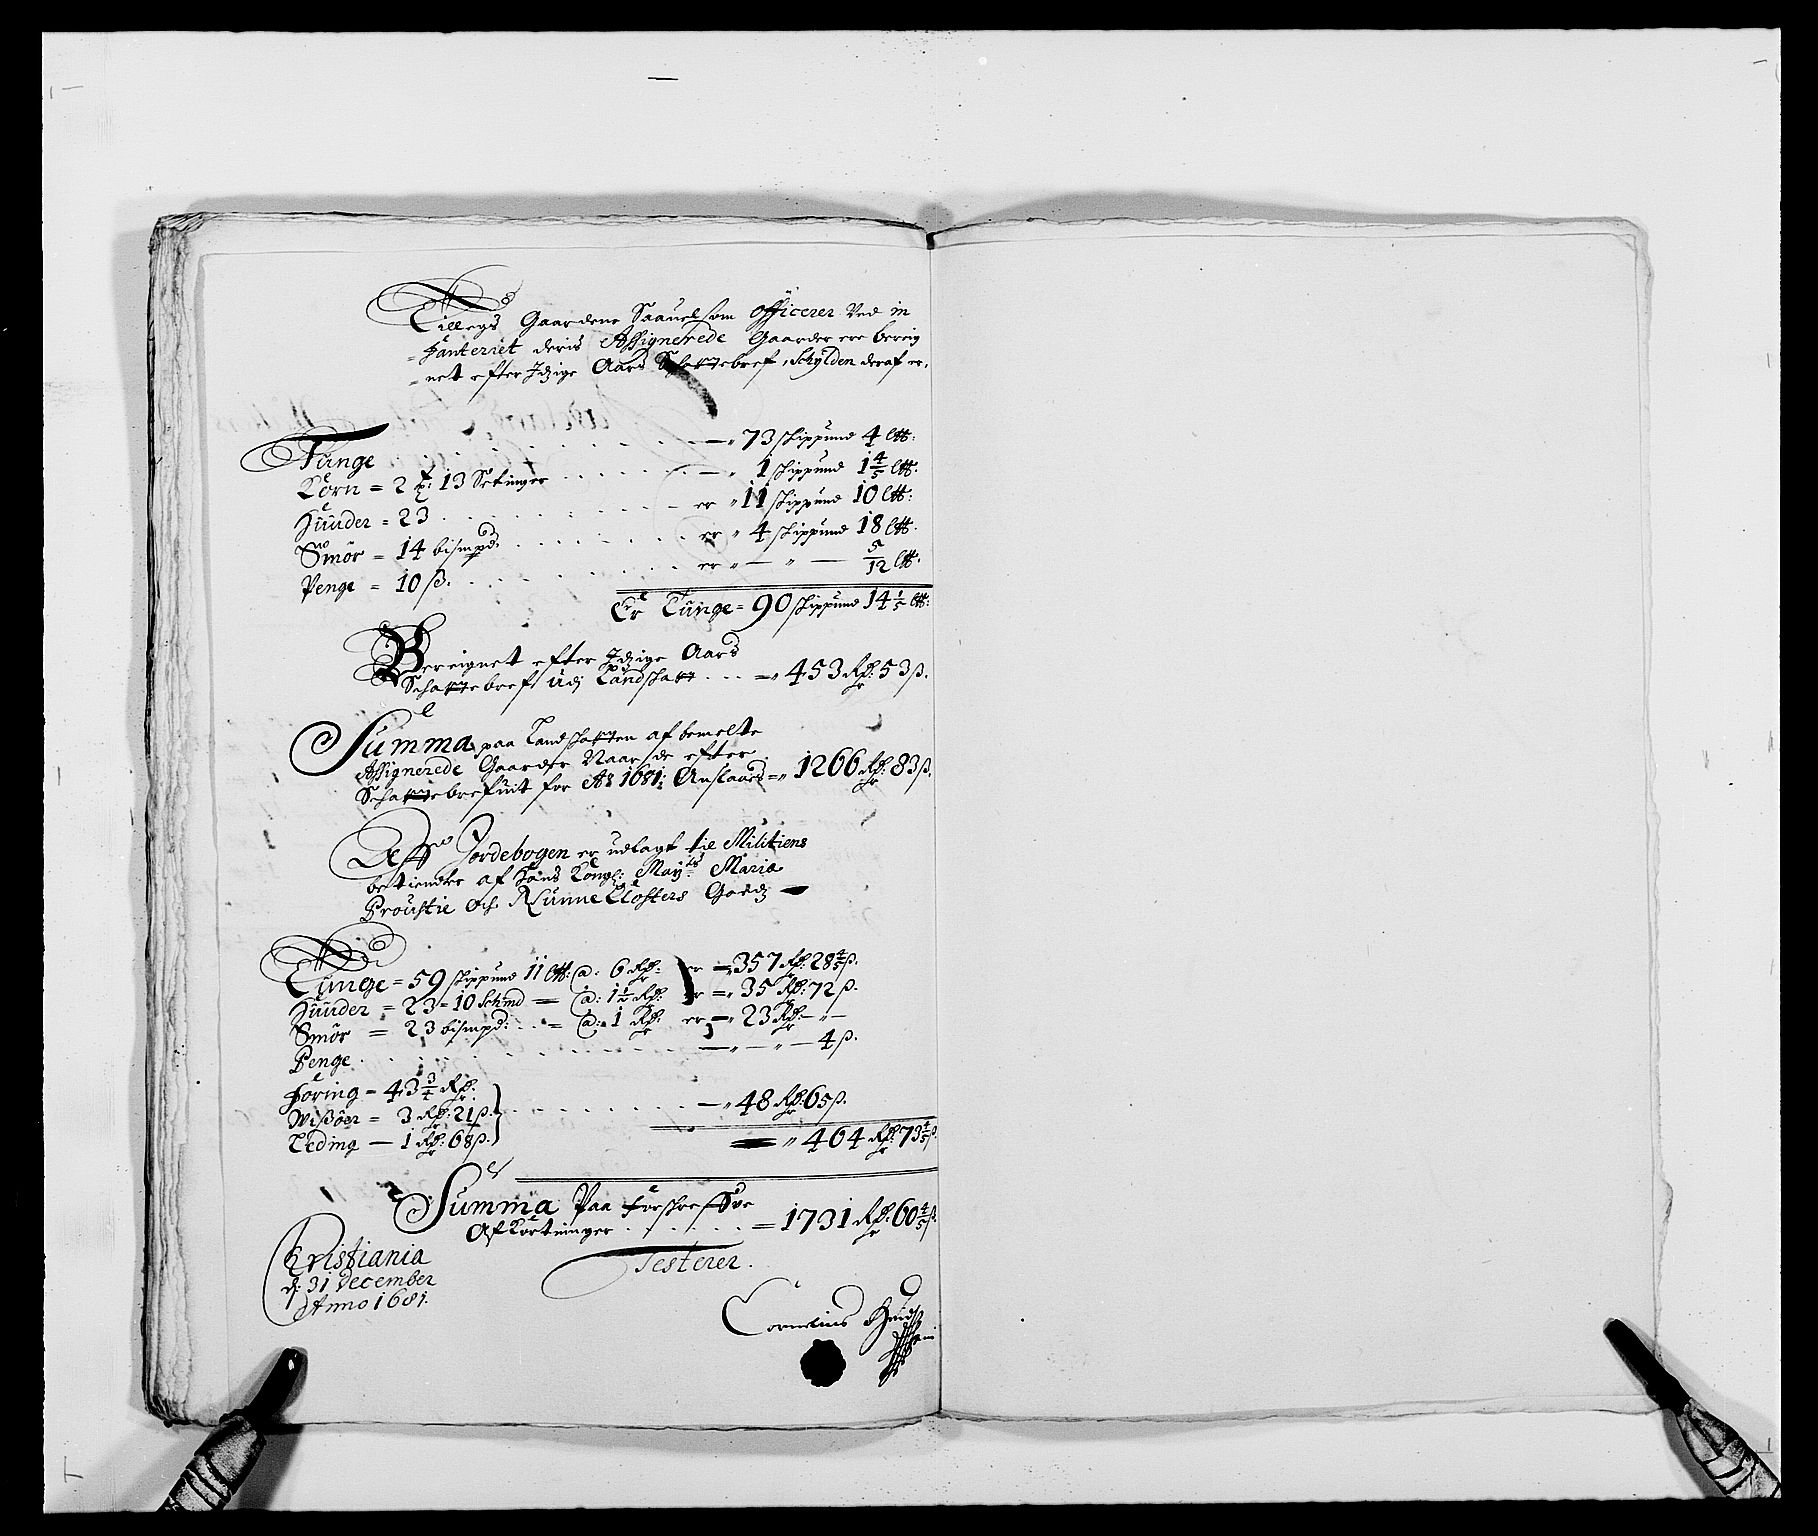 Tillegs Gaardene Saauel som Officerer Ved in
fanteriet deris Assignerede Gaarder ere bereig
net efter Idzige Aars Schattebref, Schylden deraf er,
Tunge . . . . . . — „ 73 skippund 4 Ltt:
Korn = 2 t: 13 Setinger . . . . . . — „ 1 skippund 1 4/5 Ltt:
Huuder = 23 . . . . . . er „ 11 skippund 10 Ltt:
Smör = 14 bismpd: . . . . . . er „ 4 skippund 18 Ltt:
Penge = 10 ß. . . . . . . er „ — „ — 5/12 Ltt:
Er Tunge = 90 skippund 14 1/5 Ltt:
Bereignet efter Idzige Aars
Schattebref udj Landskatt . . . = „ 453 Rdr: 53 ß.
Summa paa Landskatten af bemelte
Assignerede Gaarder Naar de efter
Schattebrefuit for Ao 1681: Anslaaes = „ 1266 Rdr: 83 ß.
Aff Jordebogen er udlagt til Militiens
betiendter af Hans Kongl: Mayts Maria
Proustie och Nunne Closters Godz —
Tunge = 59 skippund 11 Ltt: a: 6 Rdr: er — „ 357 Rdr: 28 4/5 ß.
Huuder = 23 = 10 Schind — a: 1 1/2 Rdr: er = „ 35 Rdr: 72 ß.
Smör = 23 bismpd: . . = a: 1 Rdr: er — „ 23 Rdr: — „ —
Penge . . . . . . — „ — „ — 4 ß.
Foring = 43 3/4 Rdr:
Wißöer = 3 Rdr: 21 ß. . . . . . . — „ 48 Rdr: 65 ß.
Leding — 1 Rdr: 68 ß.
= „ 464 Rdr: 73 4/5 ß.
Summa Paa forskrefne
Afkortninger . . . . . . = 1731 Rdr: 60 4/5 ß.
Christiania
d: 31 December
Anno 1681.
Testerer.
Cornelius